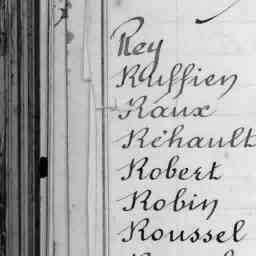 Rey
Ruffien
Raux
Réhault
Robert
Robin
Roussel